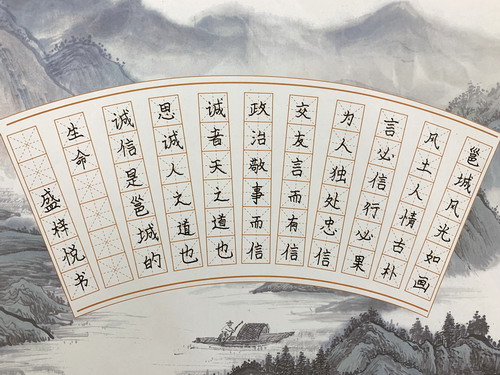 邕城风光如画
风土人情古朴
言必信行必果
为人独处忠信
交友言而有信
政治敬事而信
诚者天之道也
思诚人之道也
诚信是邕城的
生命
盛梓悦书